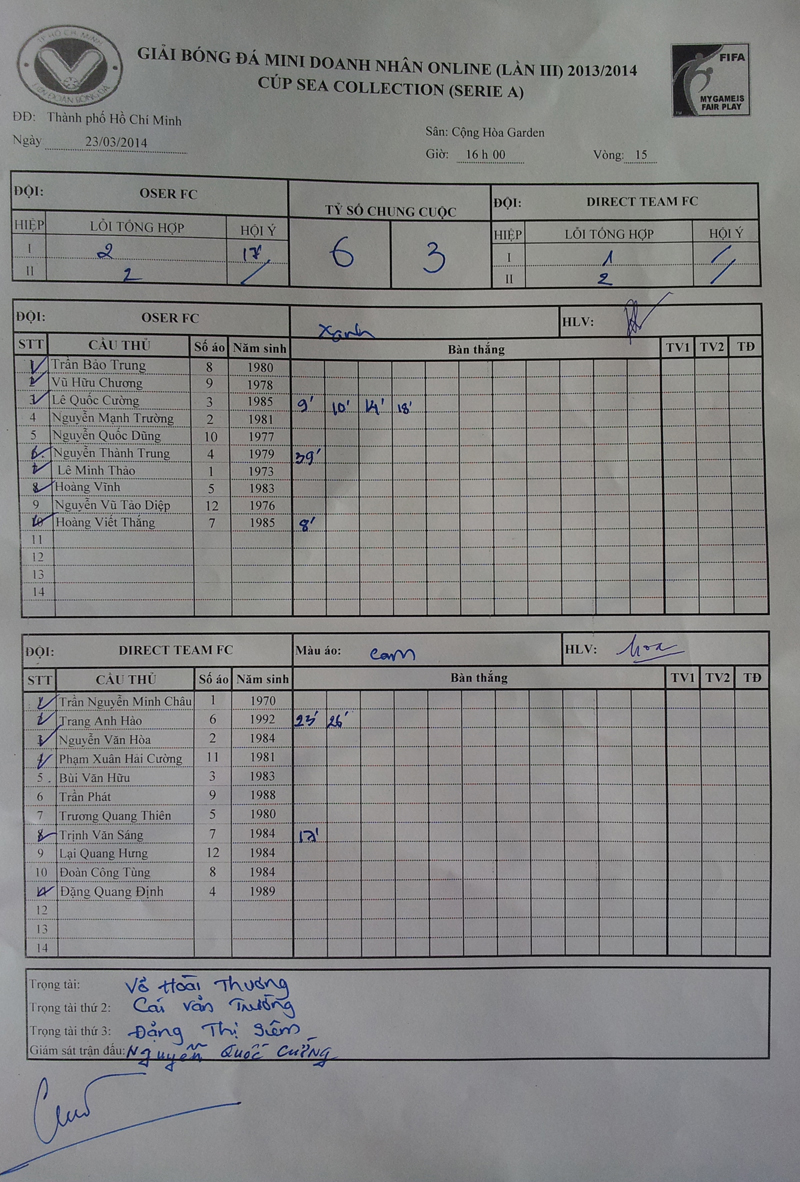 GIẢI BÓNG ĐÁ MINI DOANH NHÂN ONLINE (LẦN III) 2013/2014
CÚP SEA COLLECTION (SERIE A)
FIFA
MY GAME IS
FAIR PLAY
ĐĐ: Thành phố Hồ Chí Minh
Ngày 23/03/2014
Sân: Cộng Hòa Garden
Giờ: 16 h 00 Vòng: 15
ĐỘI: OSER FC TỶ SỐ CHUNG CUỘC ĐỘI: DIRECT TEAM FC
HIỆP LỖI TỔNG HỢP HỘI Ý 6 3 HIỆP LỖI TỔNG HỢP HỘI Ý
I 2 17 I 1
II 2 II 2
ĐỘI: OSER FC Xanh HLV:
STT CẦU THỦ Số áo Năm sinh Bàn thắng TV1 TV2 TĐ
1 Trần Bảo Trung 8 1980
2 Vũ Hữu Chương 9 1978
3 Lê Quốc Cường 3 1985 9' 10' 14' 18'
4 Nguyễn Mạnh Trường 2 1981
5 Nguyễn Quốc Dũng 10 1977
6 Nguyễn Thành Trung 4 1979 39'
7 Lê Minh Thảo 1 1973
8 Hoàng Vĩnh 5 1983
9 Nguyễn Vũ Tảo Diệp 12 1976
10 Hoàng Viết Thắng 7 1985 8'
11
12
13
14
ĐỘI: DIRECT TEAM FC Màu áo: cam HLV: hoa
STT CẦU THỦ Số áo Năm sinh Bàn thắng TV1 TV2 TĐ
1 Trần Nguyễn Minh Châu 1 1970
2 Trang Anh Hào 6 1992 23' 26'
3 Nguyễn Văn Hòa 2 1984
4 Phạm Xuân Hải Cường 11 1981
5 . Bùi Văn Hữu 3 1983
6 Trần Phát 9 1988
7 Trương Quang Thiên 5 1980
8 Trịnh Văn Sáng 7 1984 17'
9 Lại Quang Hưng 12 1984
10 Đoàn Công Tùng 8 1984
11 Đặng Quang Định 4 1989
12
13
14
Trọng tài: Võ Hoài Thương
Trọng tài thứ 2: Cái Văn Trường
Trọng tài thứ 3: Đặng Thị Siêm
Giám sát trận đấu: Nguyễn Quốc Cường